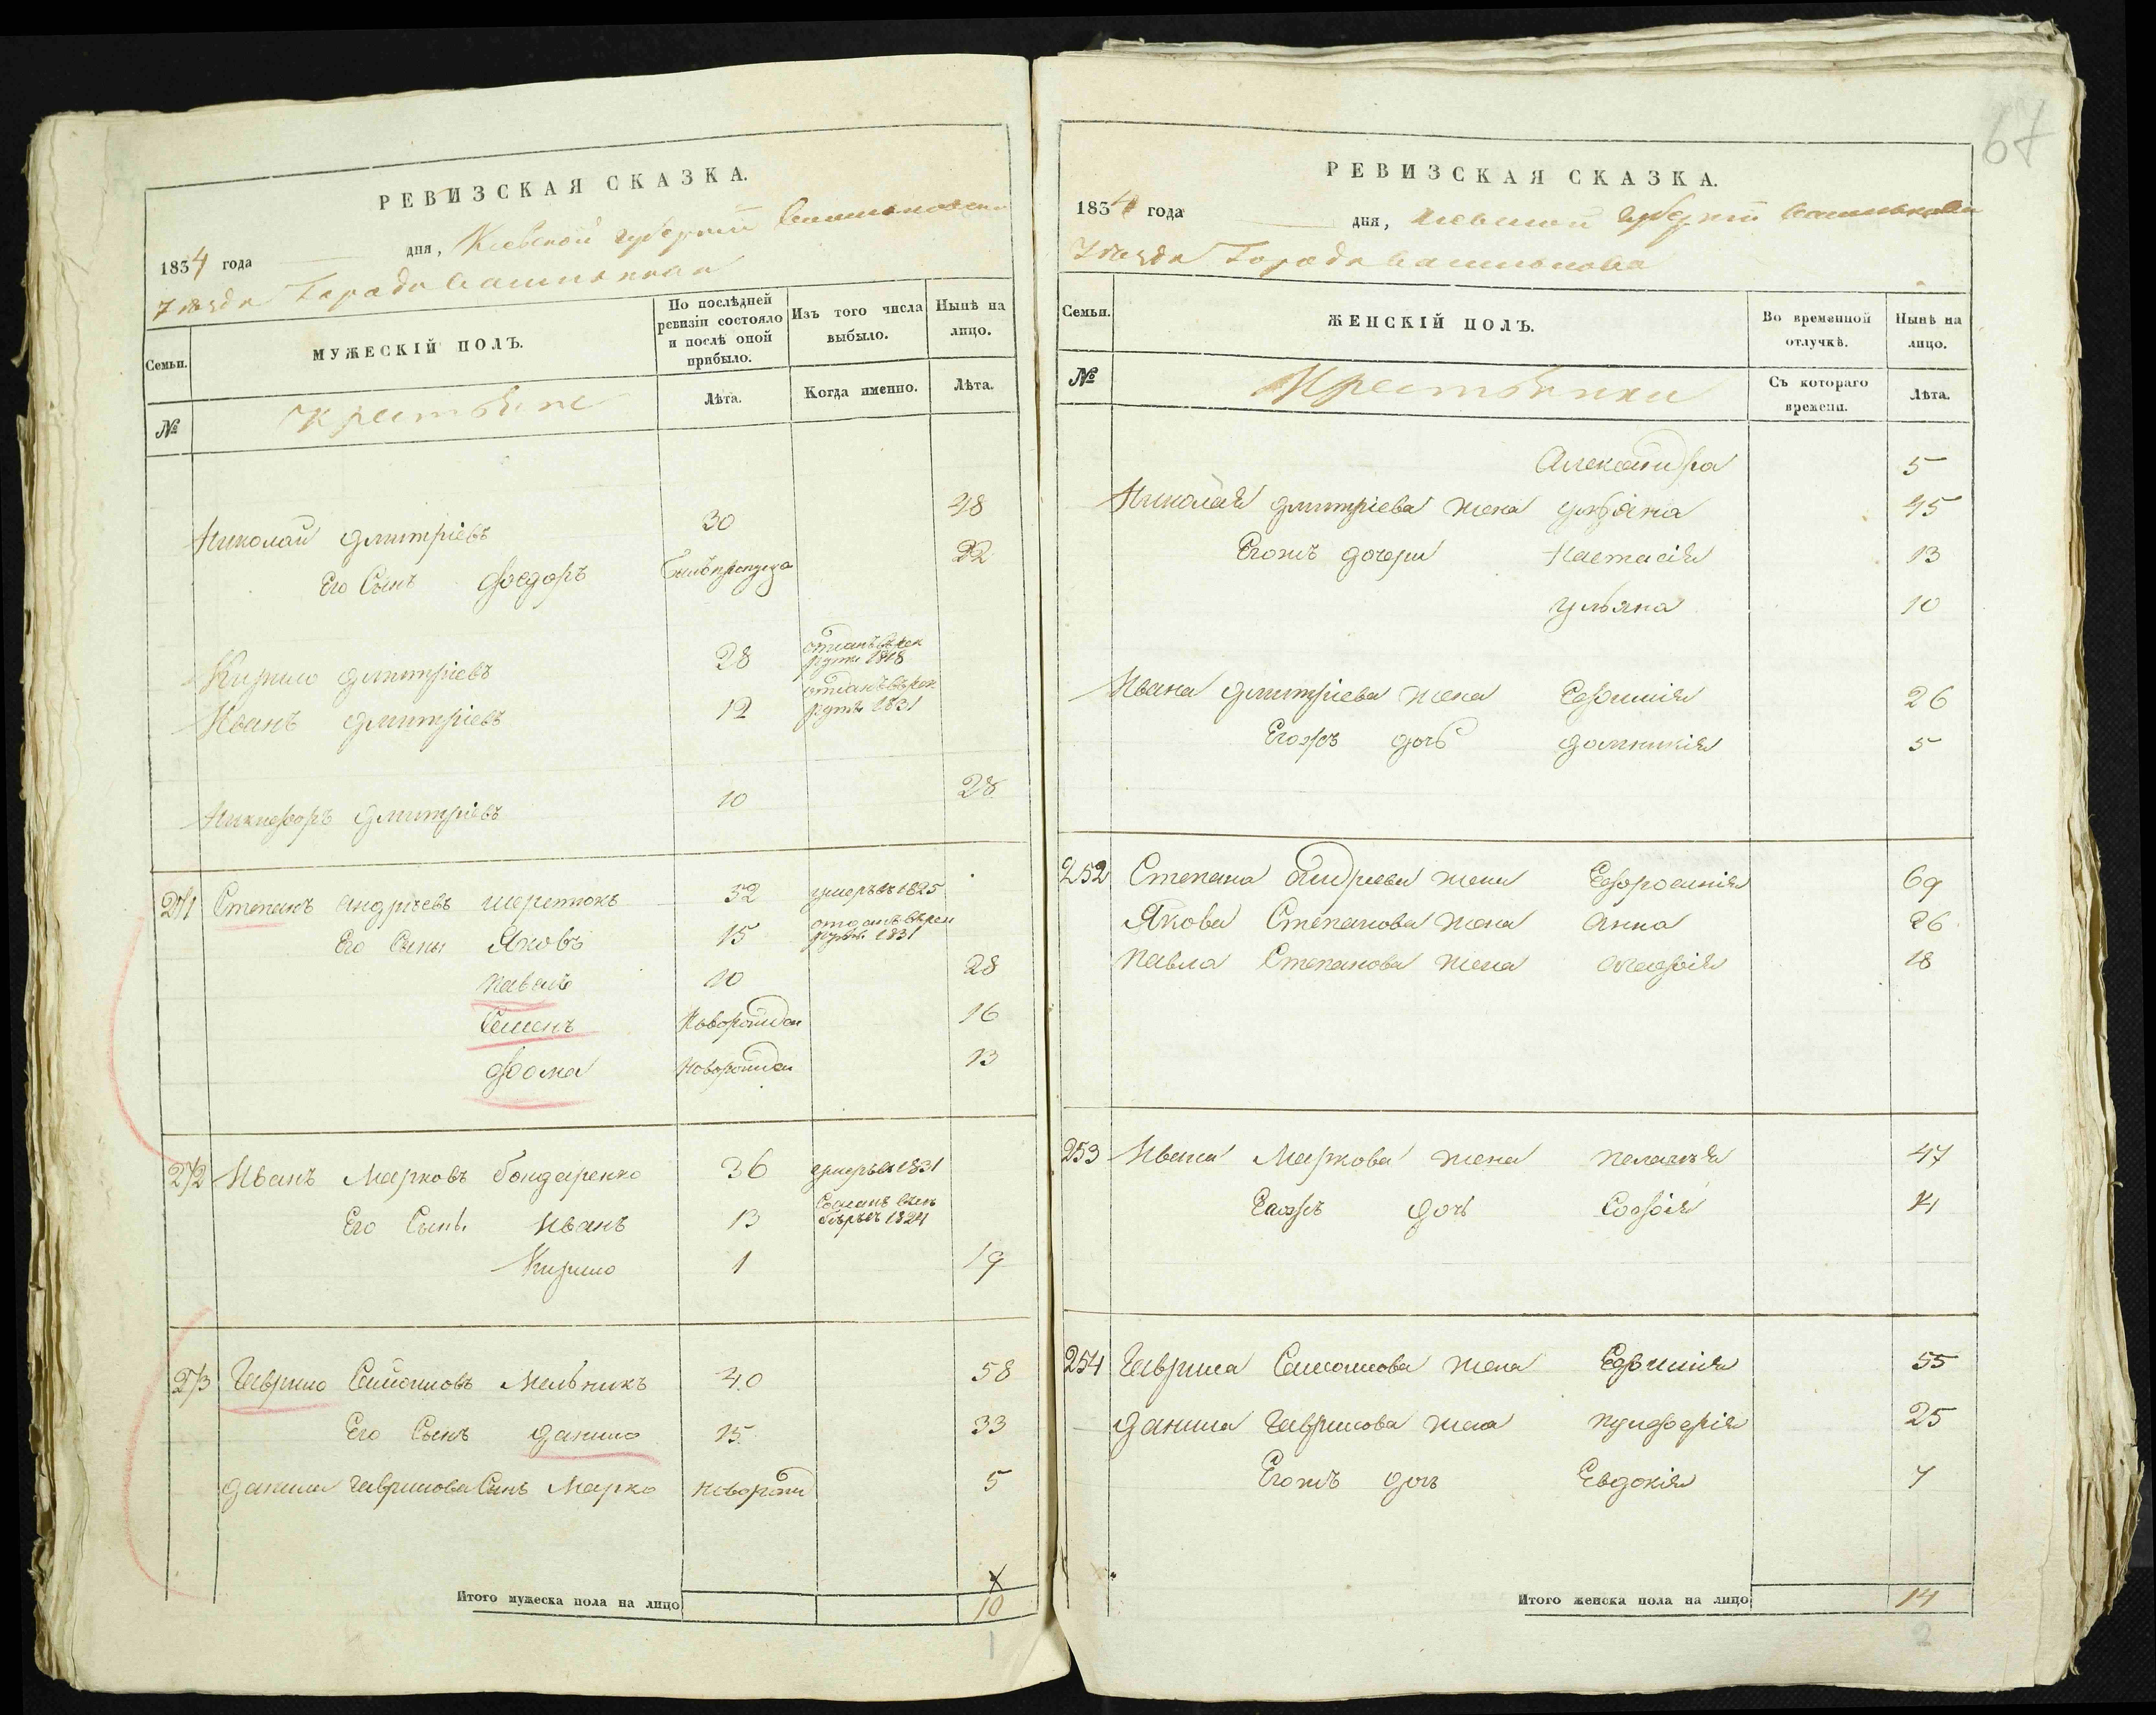 РЕВИЗСКАЯ СКАЗКА.
1834 года дня, Кіевской Губерніи Васильковскаго
Уѣзда Города Василькова
Семьи.
МУЖЕСКІЙ ПОЛЪ.
По послѣдней ревизіи состояло и послѣ оной прибыло.
Изъ того числа выбыло.
Нынѣ на лицо.
№
Крестьяне
Лѣта.
Когда именно.
Лѣта.
Николай Дмитріевъ 30 48
Его Сынъ Федоръ 22
Кирило Дмитріевъ 28 отданъ въ рекруты 1818
Иванъ Дмитріевъ 12 отданъ въ рекруты 1831
Никифоръ Дмитріевъ 10 28
251 Степанъ Андріевъ 32 умеръ въ 1825
Его Сыны Яковъ 15 отданъ въ рекруты 1831
Павелъ 10 28
Семенъ Новорожден 16
Фома Новорожден 13
252 Иванъ Марковъ Бондаренко 36 умеръ въ 1831
Его Сынъ Иванъ 13 1824
Кирило 1 19
253 Гаврило Самойловъ Мельникъ 40 58
Его Сынъ Данило 15 33
Данила Гаврилова Сынъ Марко Новорож 5
Итого мужеска пола на лицо 10
1
67
РЕВИЗСКАЯ СКАЗКА.
1834 года дня, Кіевской Губерніи Васильковскаго
Уѣзда Города Василькова
Семьи.
ЖЕНСКІЙ ПОЛЪ.
Во временной отлучкѣ.
Нынѣ на лицо.
№
Крестьянки
Съ котораго времени.
Лѣта.
Александра 5
Николая Дмитріева жена Ульяна 45
Егожъ дочери Настасія 13
Ульяна 10
Ивана Дмитріева жена Ефимія 26
Егожъ дочь Домникія 5
252 Степана Андріева жена Ефросинія 69
Якова Степанова жена Анна 26
Павла Степанова жена 18
253 Ивана Маркова жена Пелагея 47
Егожъ дочь Софія 14
254 Гаврила Самойлова жена Ефимія 55
Данила Гаврилова жена Пулферія 25
Егожъ дочь Евдокія 7
Итого женска пола на лицо 14
2